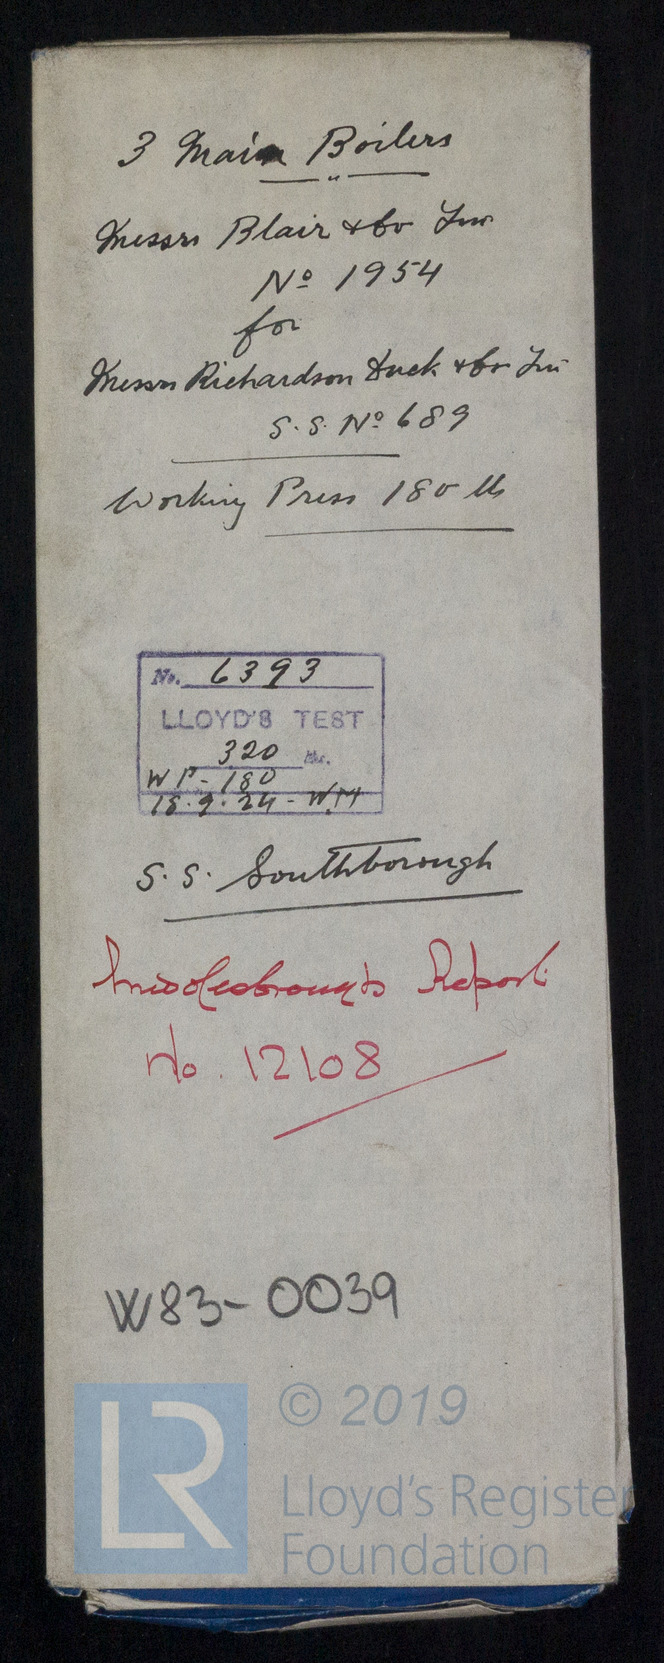 3 Main Boilers
"
Messrs Blair & Co Lim
No 1954
for
Messrs Richardson Duck & Co Lim
S.S. No 689
Working Press 180 lbs
No. 6393
LLOYD'S TEST
320 lbs.
W P - 180
18.9.24 - W.M
S.S. Southborough
Middlesbrough's Report
No. 12108
W83-0039
LR
© 2019
Lloyd's Register
Foundation